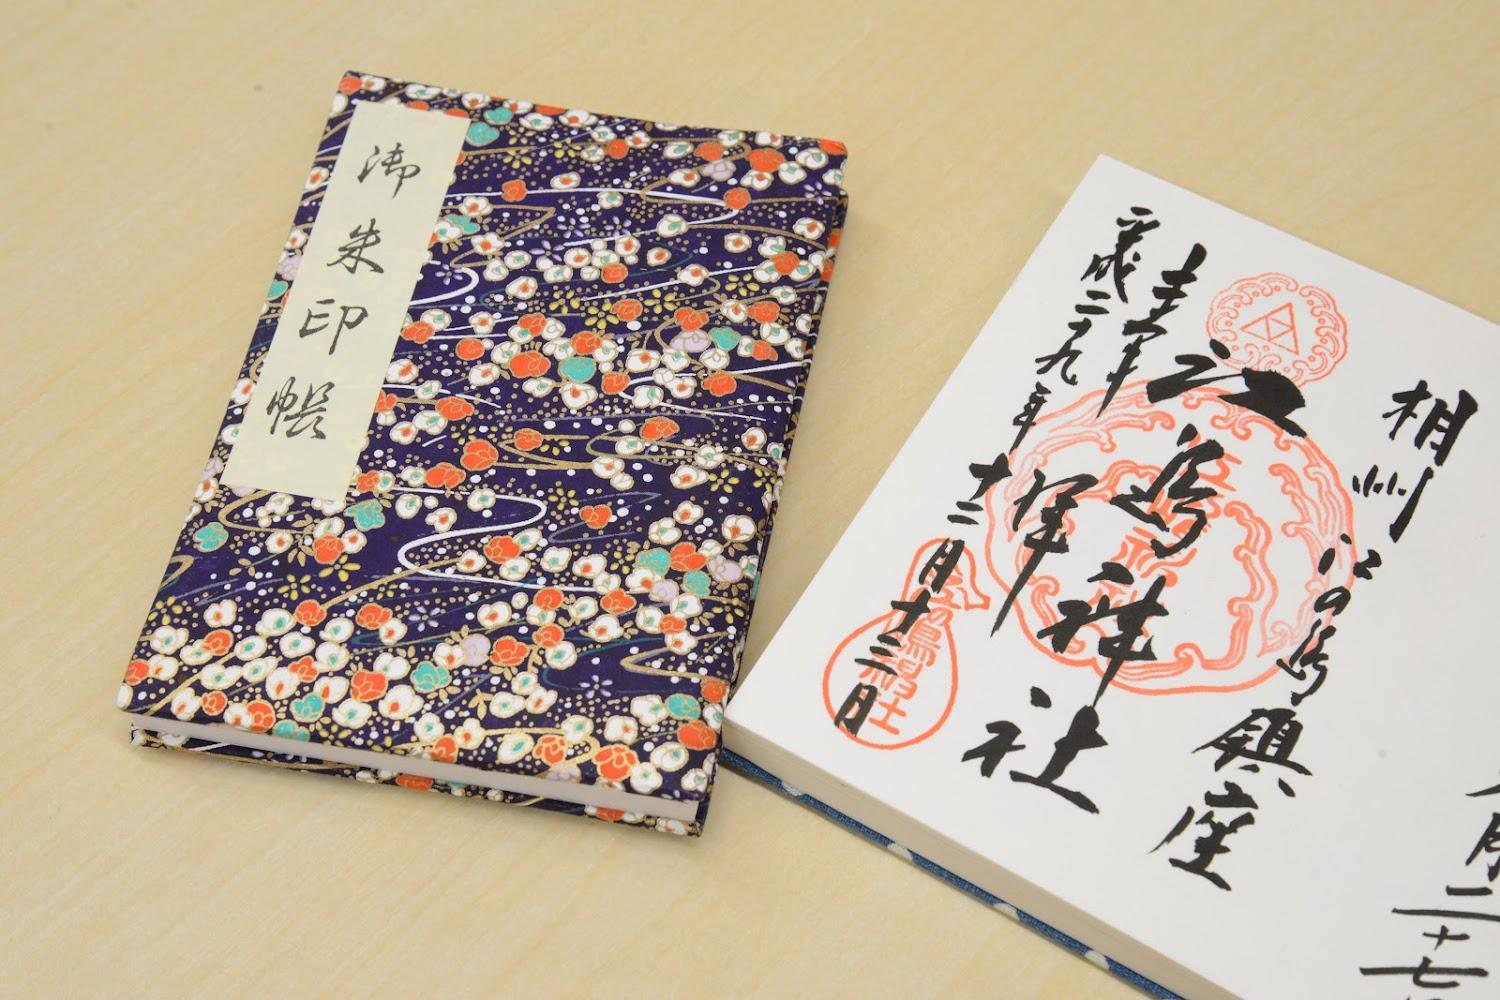 御朱印帳
相州 江の島鎮座
江島神社
奉拝
平成二十九年 十二月 十三日
月二十七